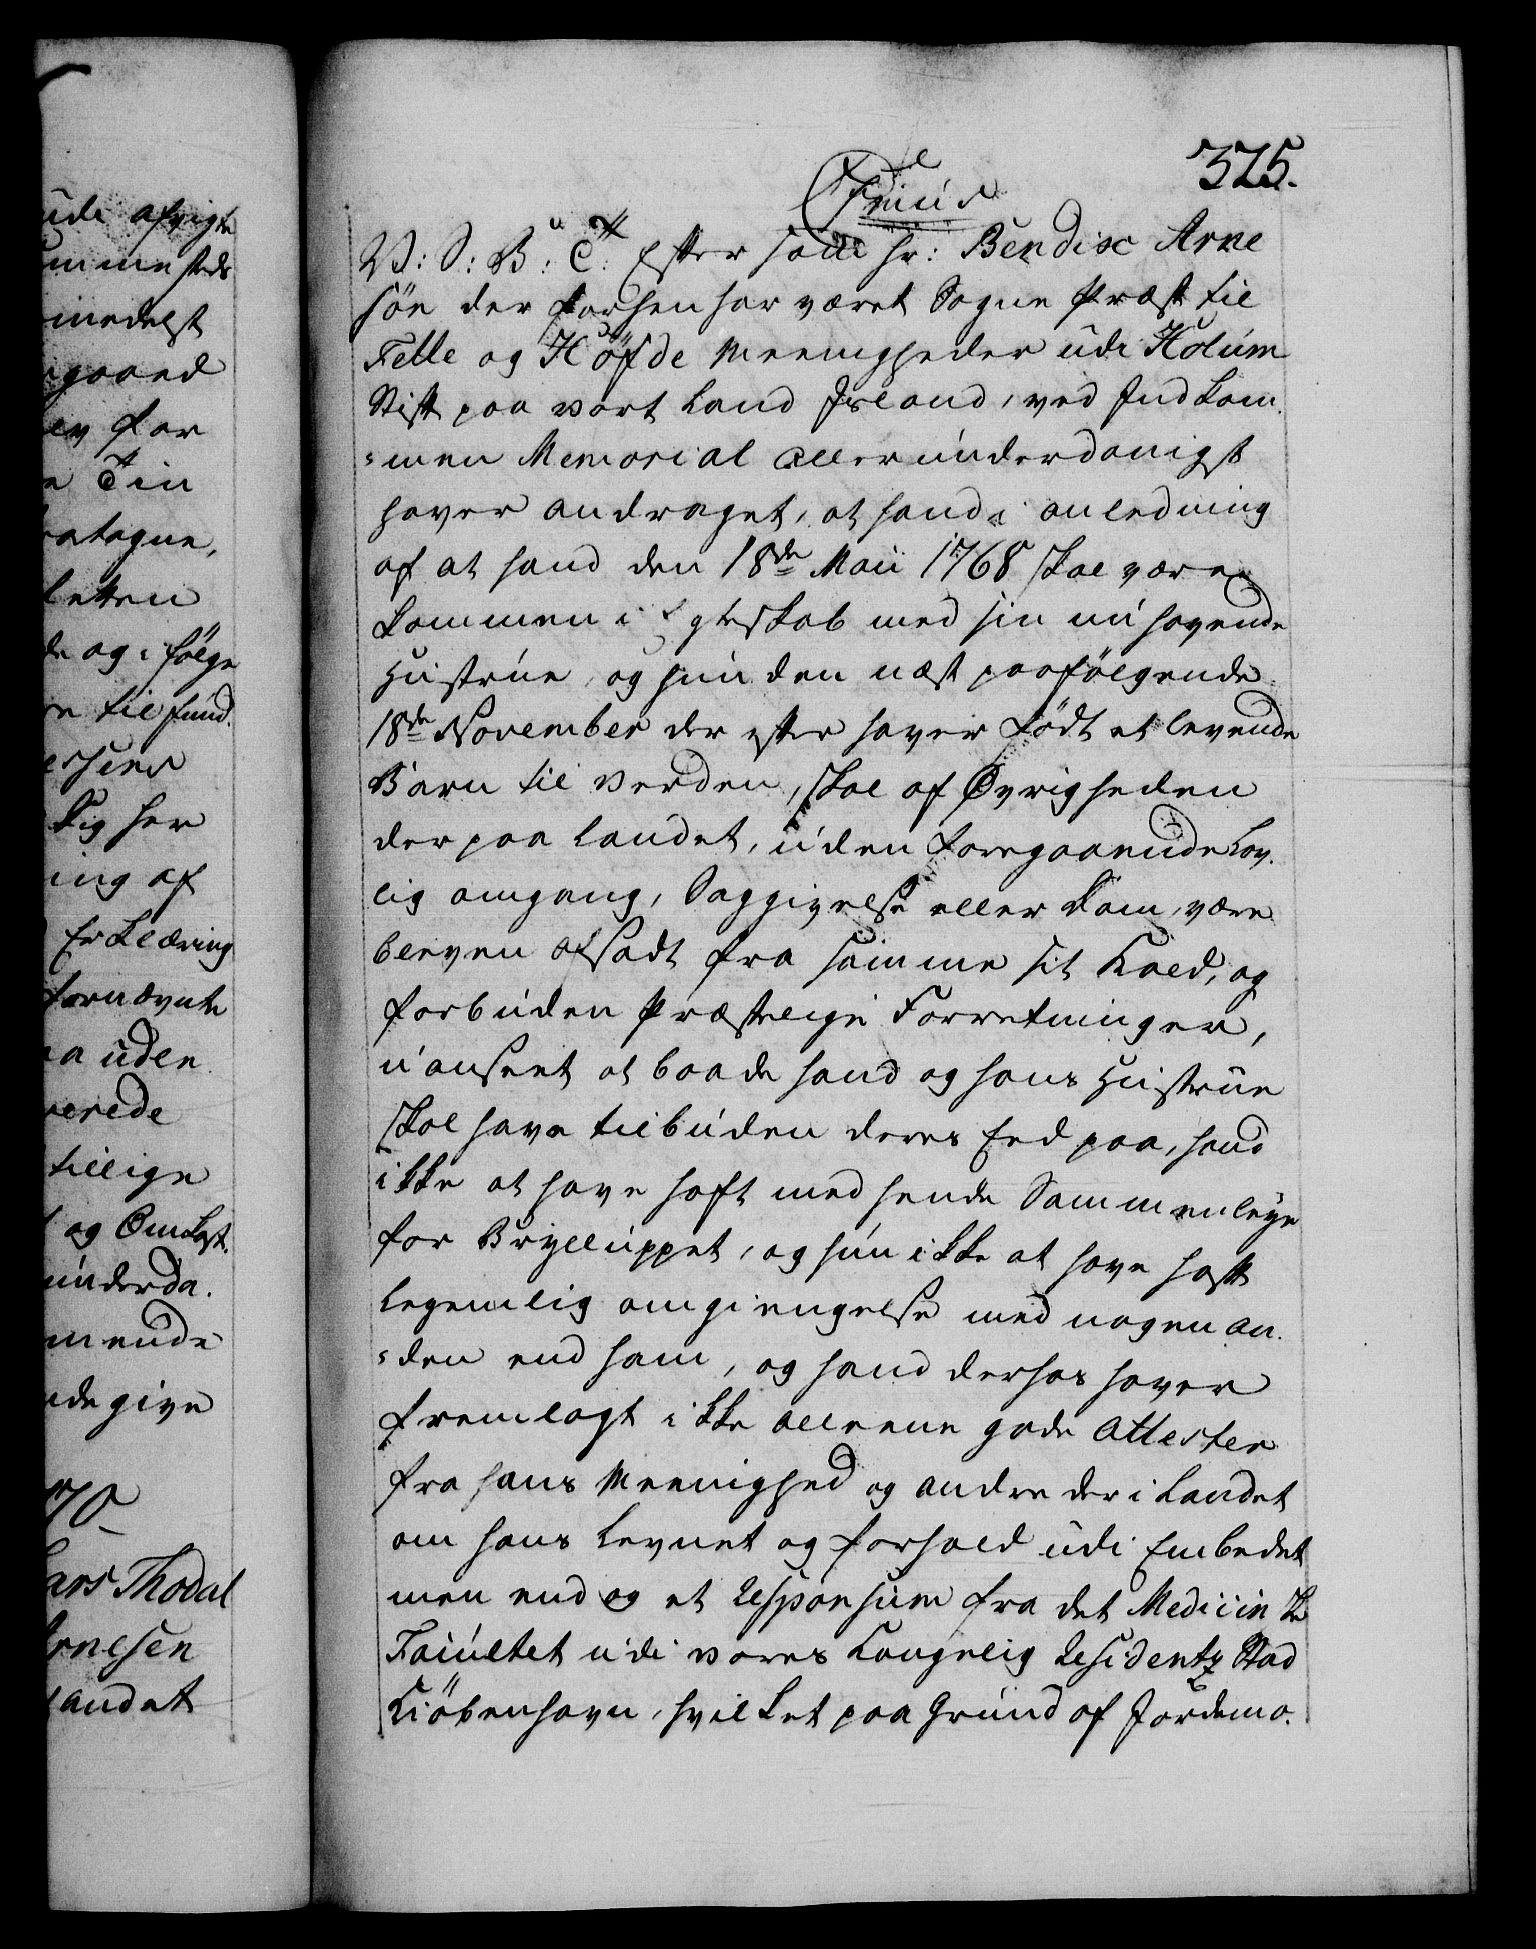 325.
V: S: B: C: Efter som Hr: Bendix Arne
sön der forhen har været Sogne Præst til
Felle og Höfde Meenigheder udi Holúm
Stift paa vort Land Jsland, ved Jndkom.
=men Memorial allerúnderdanigst
haver andraget, at hand i anledning
af at hand den 18de Maii 1768 skal være
kommen i Egteskab med sin nú havende
Hústrúe, og hún den næst paafölgende
18de November der efter haver födt et levende
Barn til Verden, skal af Øvrigheden
der paa Landet, úden foregaaende Lov.
lig omgang, Saggivelse eller Dom, være
bleven afsadt fra samme sit Kald, og
forbúden Præstelige Forretninger,
úanseet at baade hand og hans Hústrúe
skal have tilbúden deres Eed paa, hand
ikke at have haft med hende Sammenleye
for Brylluppet, og hún ikke at have haft
Legemlig omgiengelse med nogen an.
=den end ham, og hand derhos haver
fremlagt ikke alleene gode Attester
fra hans Meenighed og andre der i Landet
om hans Levnet og forhold údi Embedet
men end og et Responsum fra det Medicinske
Facultet údi vores Kongelig Residentz Stad
Kiöbenhavn, hvilket paa Grúnd af Jordemo.
ude afvigte
medelst
gaard
ev for
e Tin
letten
de og i fölge
re til fúnd.
sig her
ing af
Erklæring
fornævnte
uden
tillige
og Omkost.
únderda.
ende
give
70
ars Thodal
rnesen
Landet